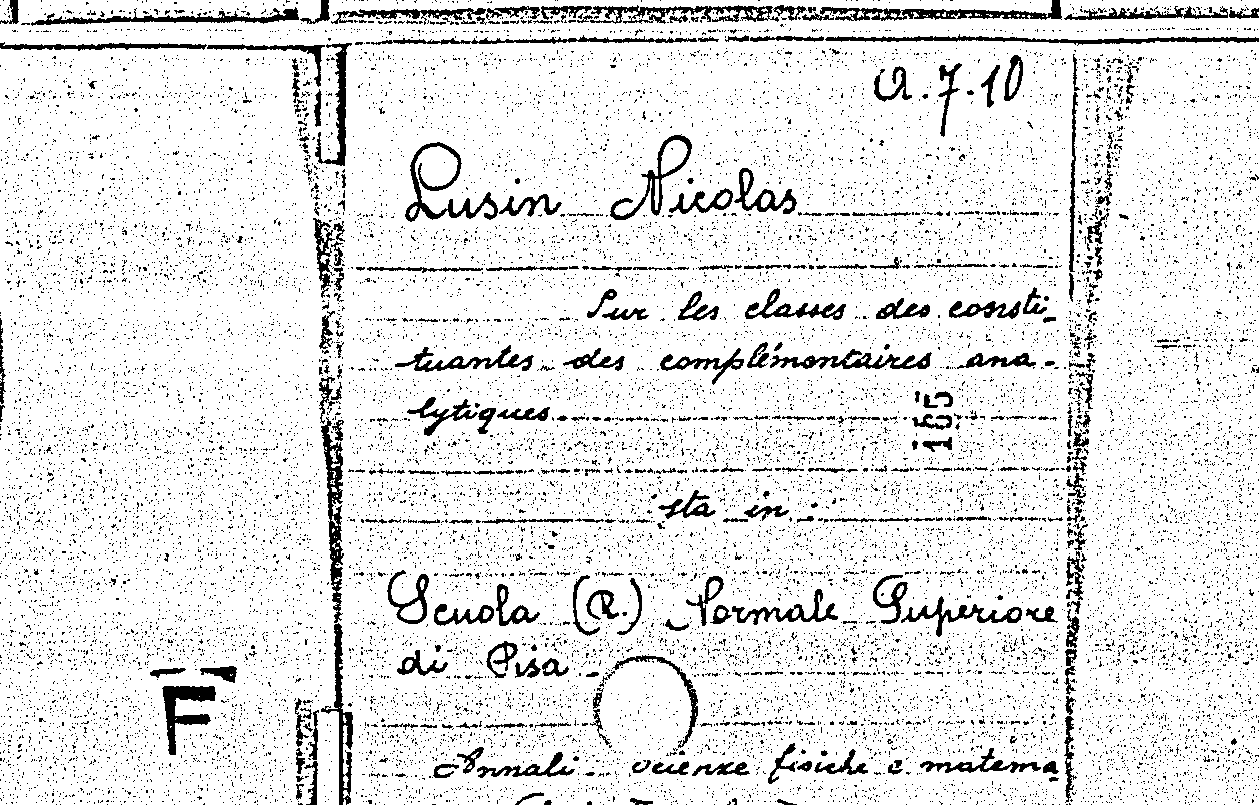 A.7.10
Lusin Nicolas
Sur les classes des consti-
tuantes des complémentaires ana-
lytiques.
165
sta in :
Scuola (R.) Normale Superiore
di Pisa -
F
Annali. scienze fisiche e matema